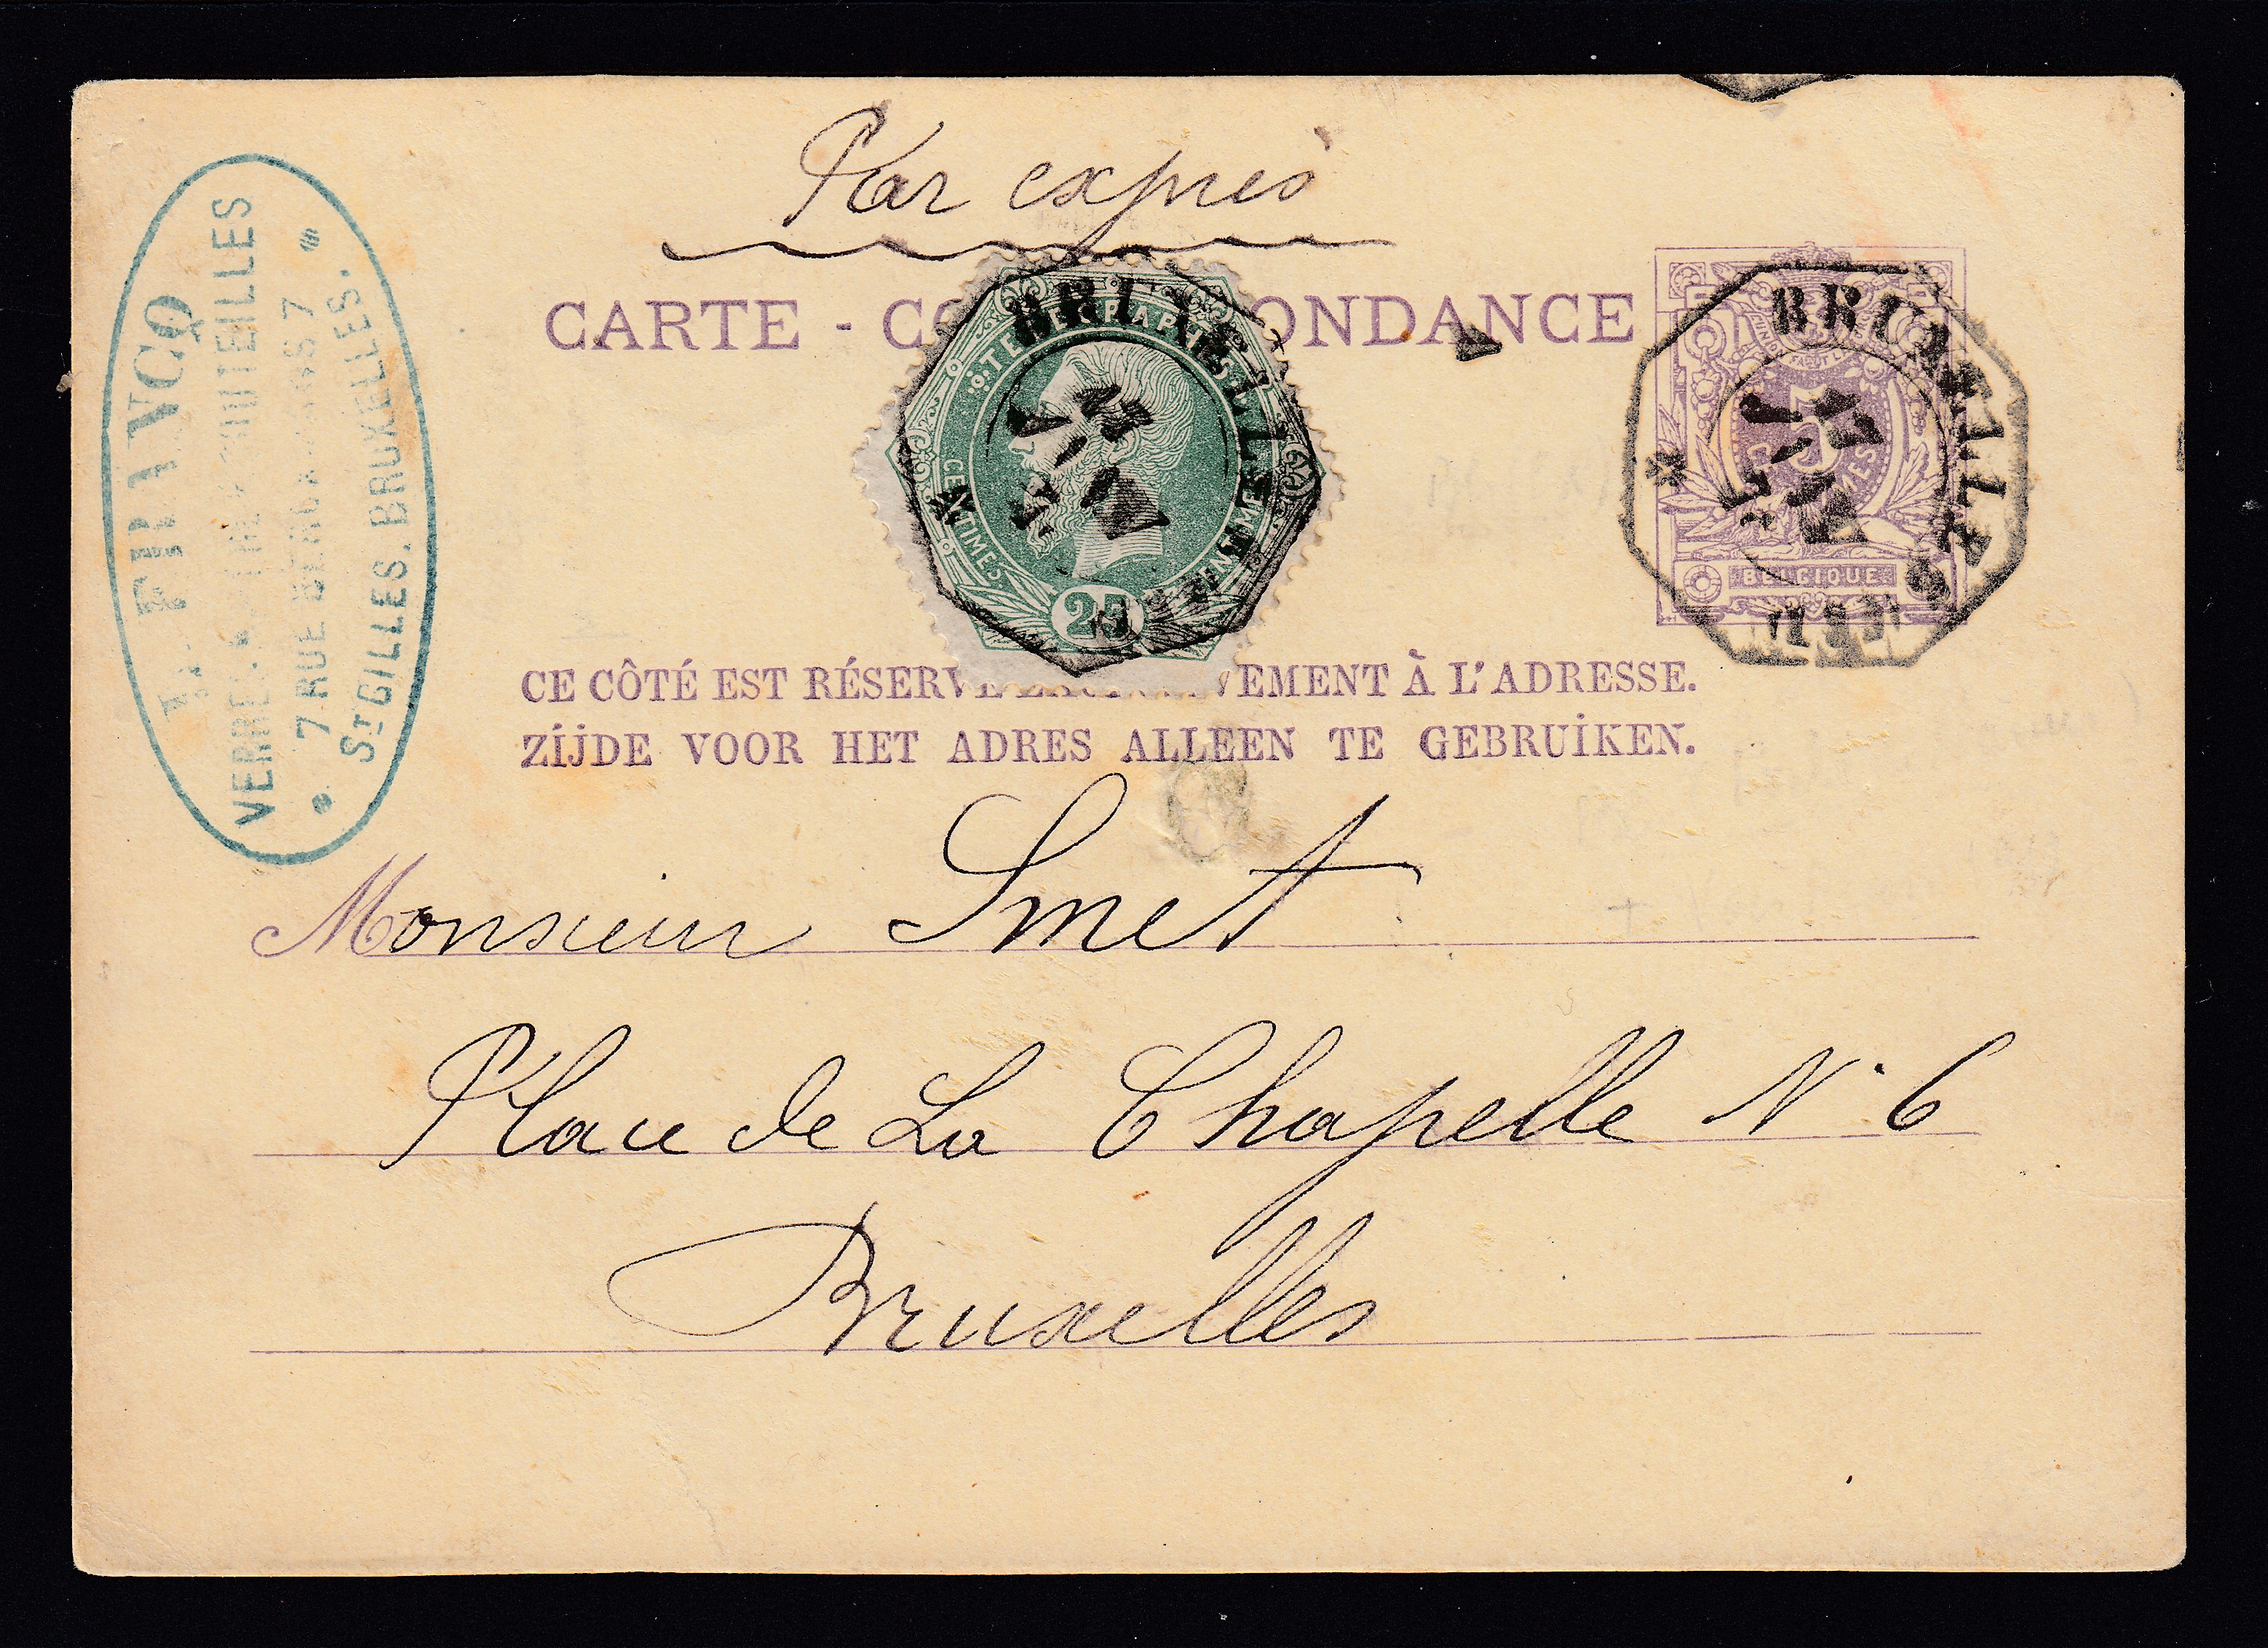 Par exprès
CARTE - CO ONDANCE
TÉLÉGRAPHES
CENTIMES
25
BRUXELLES
5
BELGIQUE
BRUXELLES
CE CÔTÉ EST RÉSERVÉ VEMENT À L'ADRESSE.
ZIJDE VOOR HET ADRES ALLEEN TE GEBRUIKEN.
FRANCQ
BOUTEILLES
7 RUE 7
ST GILLES. BRUXELLES.
Monsieur Smet
Place de La Chapelle N° 6
Bruxelles